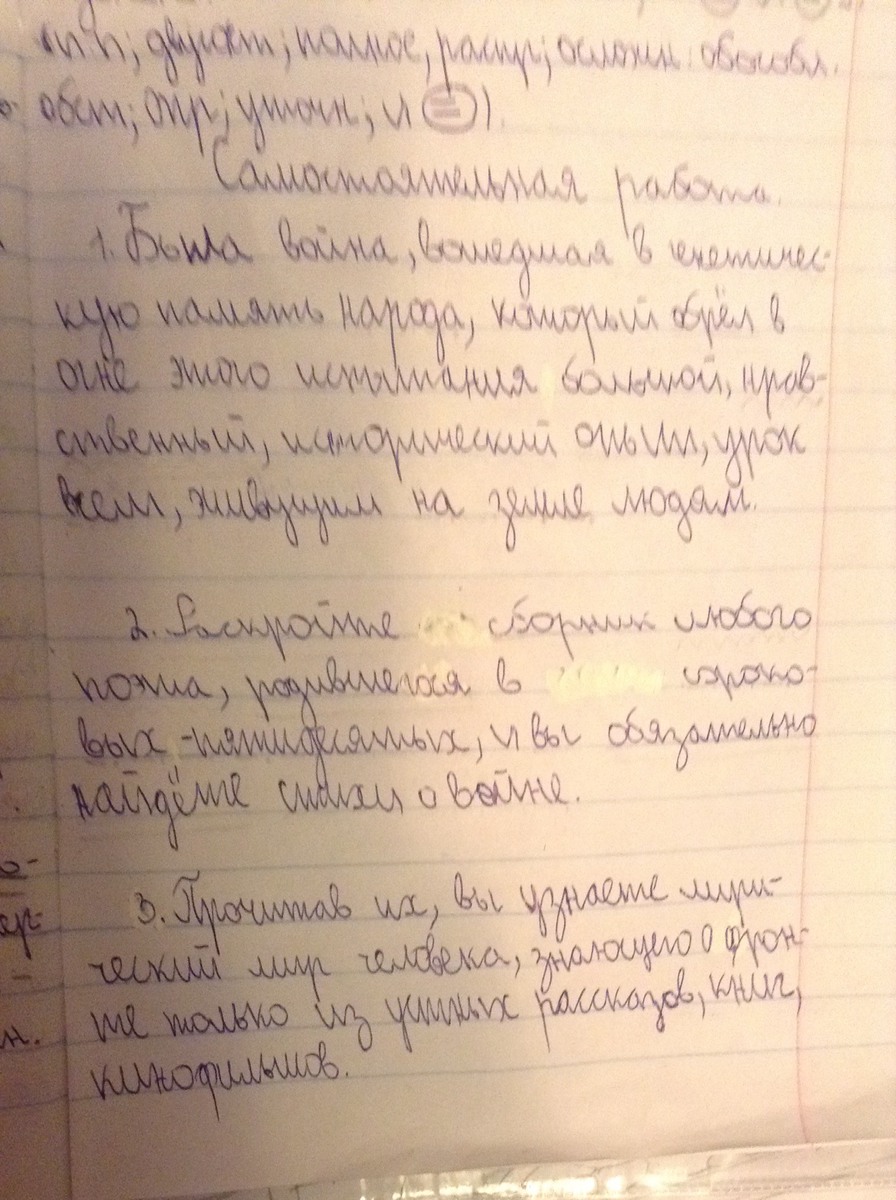 двусост; полное, распр; осложн. обособл.
обст; опр; уточн; и = ).
Самостоятельная работа.
1. Была война, вошедшая в генетичес-
кую память народа, который обрёл в
огне этого испытания большой, нрав-
ственный, исторический опыт, урок
всем, живущим на земле людям.
2. Раскройте сборник любого
поэта, родившегося в сороко-
вых-пятидесятых, и вы обязательно
найдёте стихи о войне.
3. Прочитав их, вы узнаете лири-
ческий мир человека, знающего о фрон-
те только из устных рассказов, книг,
кинофильмов.
н.